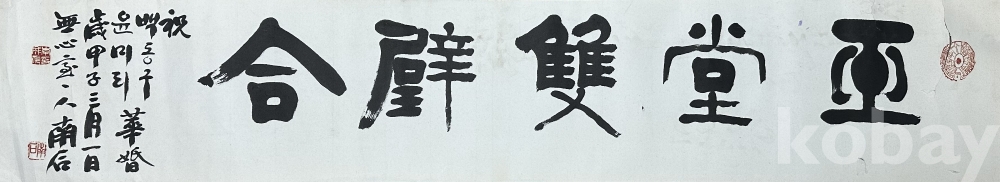 玉堂雙璧合
祝
백동구
윤미리 華婚
歲甲子三月一日
無心室主人 南石
kobay